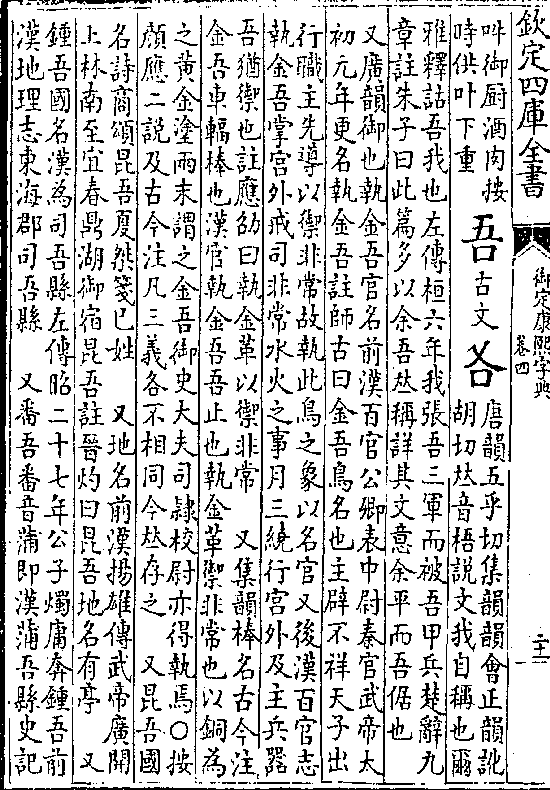 欽定四庫全書
御定康熙字典
卷四
二十一
吽御厨酒肉按
時供吽下重
吾古文㕦
唐韻五乎切集韻韻會正韻訛
胡切𠀤音梧說文我自稱也爾
雅釋詁吾我也左傳桓六年我張吾三軍而被吾甲兵楚辭九
章註朱子曰此篇多以余吾𠀤稱詳其文意余平而吾倨也
又廣韻御也執金吾官名前漢百官公卿表中尉秦官武帝太
初元年更名執金吾註師古曰金吾鳥名也主辟不祥天子出
行職主先導以禦非常故執此鳥之象以名官又後漢百官志
執金吾掌宮外戒司非常水火之事月三繞行宮外及主兵器
吾猶禦也註應劭曰執金革以禦非常 又集韻棒名古今注
金吾車輻棒也漢官執金吾吾止也執金革禦非常也以銅為
之黃金塗兩末謂之金吾御史大夫司隸校尉亦得執焉○按
顏應二說及古今注凡三義各不相同今𠀤存之 又昆吾國
名詩商頌昆吾夏桀箋己姓 又地名前漢揚雄傳武帝廣開
上林南至宜春鼎湖御宿昆吾註晉灼曰昆吾地名有亭 又
鍾吾國名漢為司吾縣左傳昭二十七年公子燭庸奔鍾吾前
漢地理志東海郡司吾縣 又番吾番音蒲即漢蒲吾縣史記